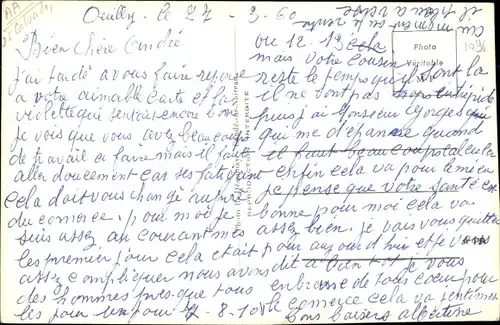 Oeuilly. le 27 - 3. 60
Bien Chère Andrée
j'ai tardé a vous faire reponse
a votre aimable carte et la
violette qui sentais encore bon
je vois que vous avez beaucoup
de travail a faire mais il faut
aller doucement cas ses fatiguant
cela doit vous changé auprès
du comerce. pour moi je
suis assez au courant mes
les premier jour cela était
assez compliquer nous avons
des hommes presque tous
les jour un jour 7 - 8 - 10
ou 12 - 13 cela
mais votre cousin
reste le temps qu'il sont la
il ne vont pas trop rapide
puis j'ai Monsieur Georges
qui me dépanne quand
il faut beaucoup
enfin cela va pour le mieux
je pense que votre santé est
bonne pour moi cela va
assez bien. je vais vous quitter
pour aujourd'hui et je vous
dit a bientot je vous
embrasse de tous cœur pour
le comerce cela va
bons baisers Albertine
Photo
Véritable
INTERDITE
Calvados